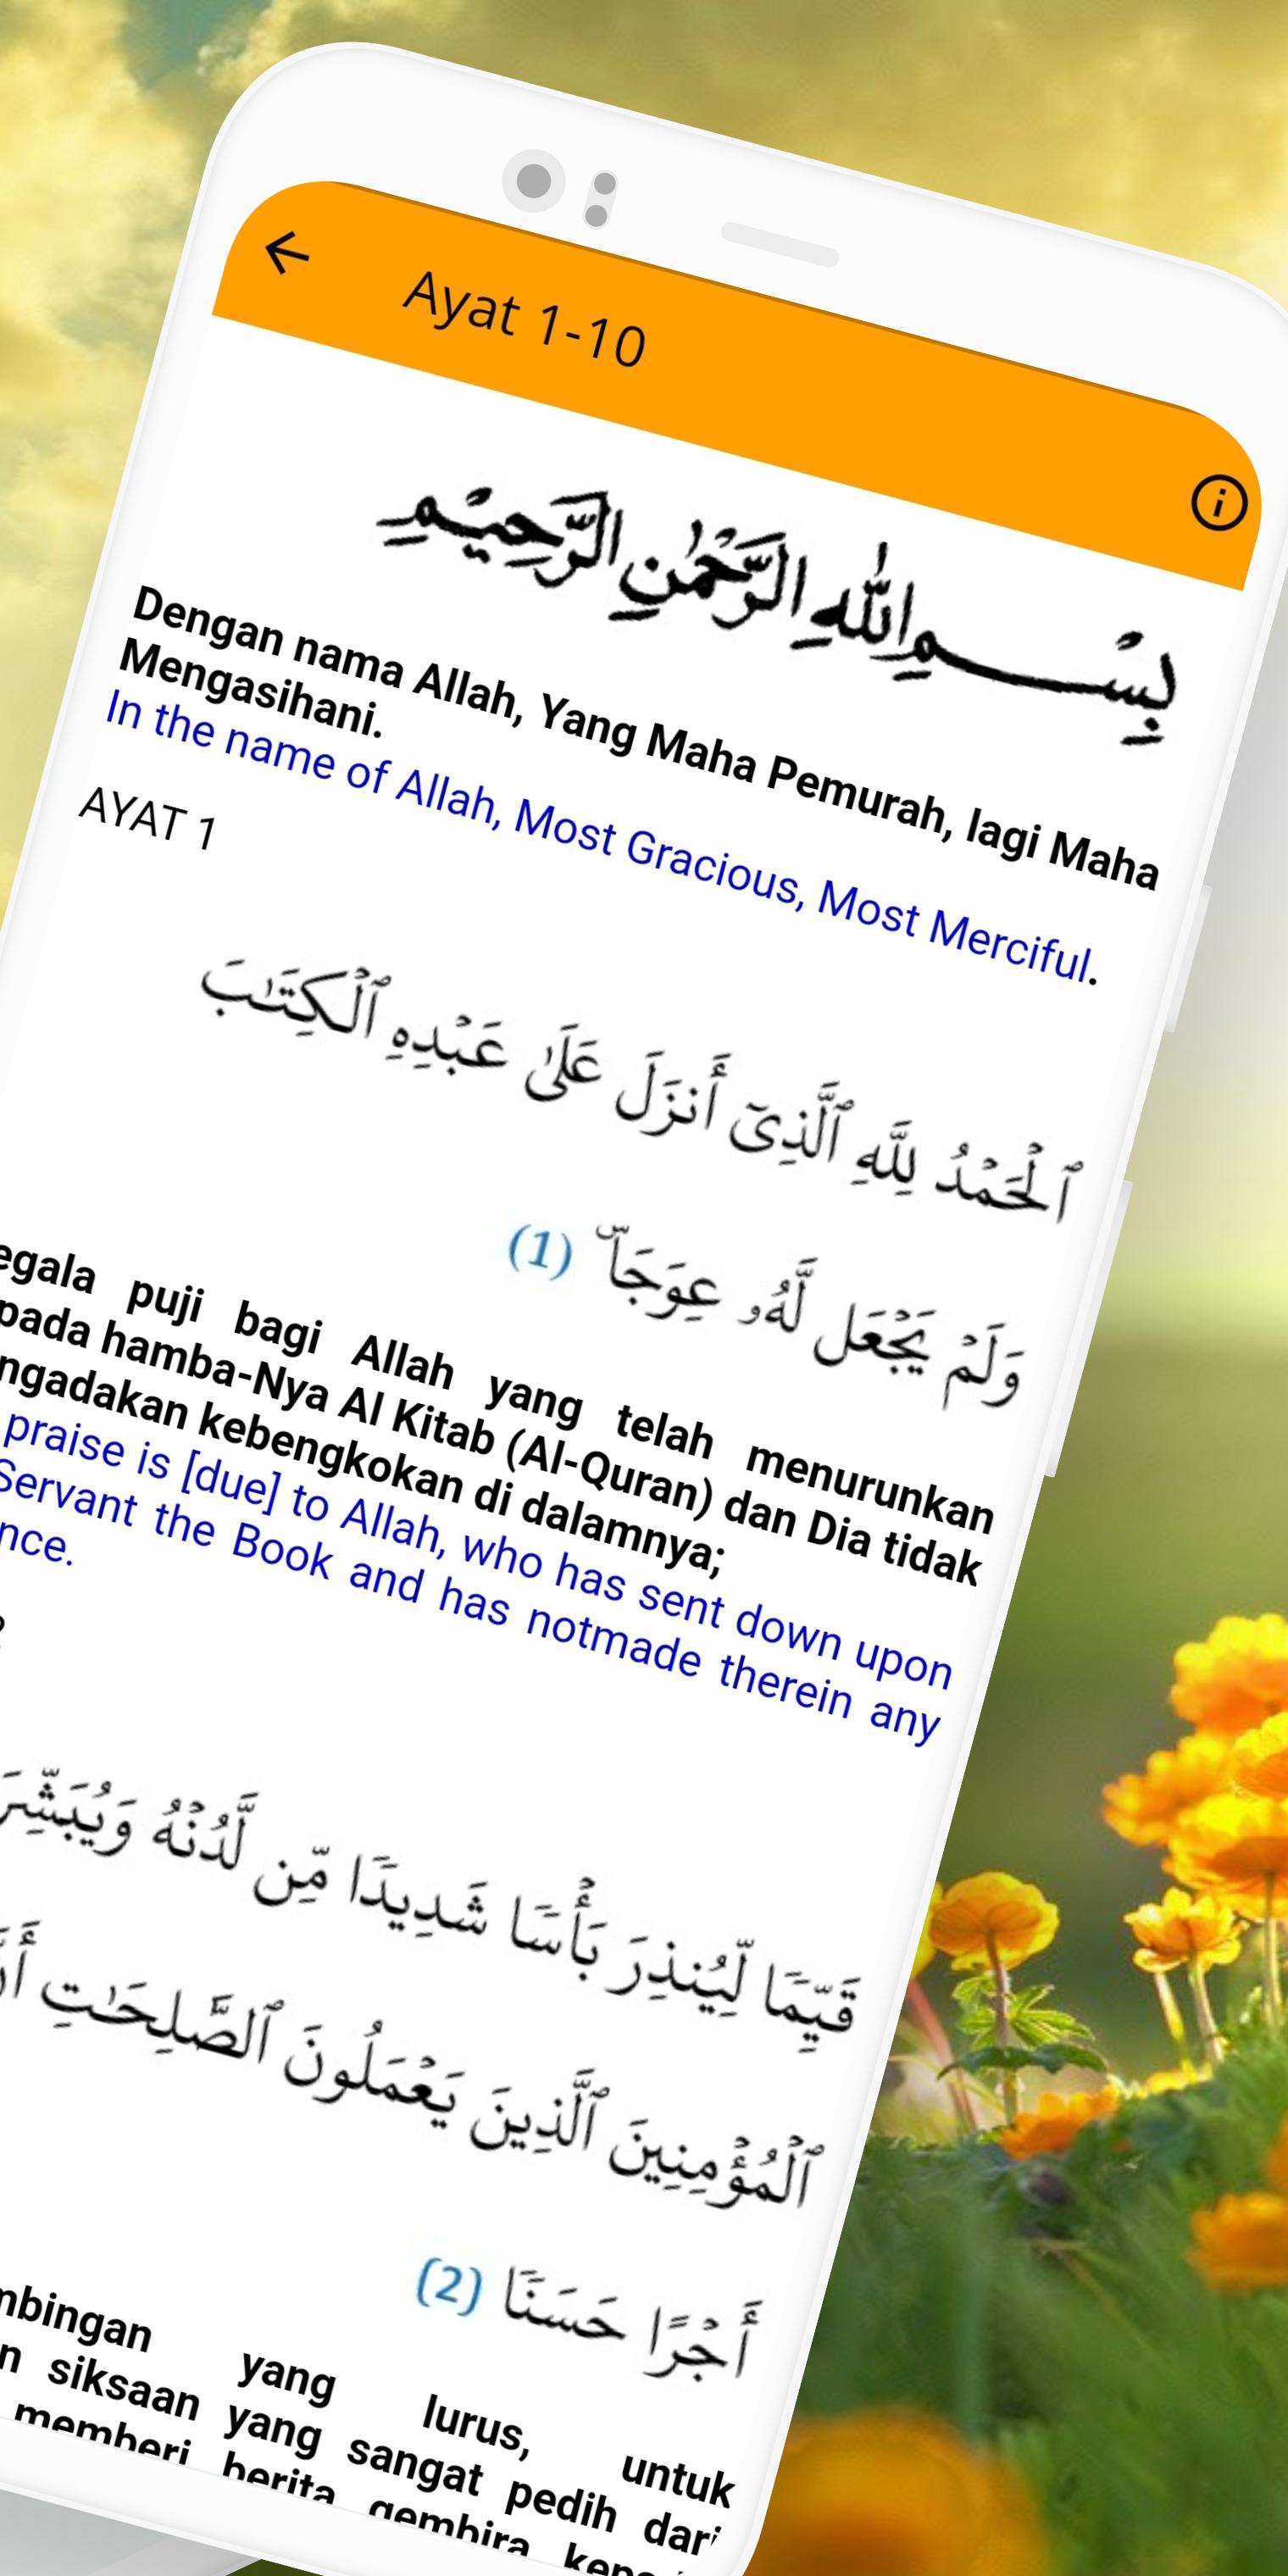 Ayat 1-10
بِسْـــمِ اللّٰهِ الرَّحْمٰنِ الرَّحِيْمِ
Dengan nama Allah, Yang Maha Pemurah, lagi Maha
Mengasihani.
In the name of Allah, Most Gracious, Most Merciful.
AYAT 1
ٱلْحَمْدُ لِلَّهِ ٱلَّذِىٓ أَنزَلَ عَلَىٰ عَبْدِهِ ٱلْكِتَٰبَ
وَلَمْ يَجْعَل لَّهُۥ عِوَجَاۜ (1)
egala puji bagi Allah yang telah menurunkan
pada hamba-Nya Al Kitab (Al-Quran) dan Dia tidak
ngadakan kebengkokan di dalamnya;
praise is [due] to Allah, who has sent down upon
Servant the Book and has notmade therein any
nce.
قَيِّمًا لِّيُنذِرَ بَأْسًا شَدِيدًا مِّن لَّدُنْهُ وَيُبَشِّرَ
ٱلْمُؤْمِنِينَ ٱلَّذِينَ يَعْمَلُونَ ٱلصَّٰلِحَٰتِ
أَجْرًا حَسَنًا (2)
mbingan yang lurus, untuk
n siksaan yang sangat pedih dari
memberi berita gembira